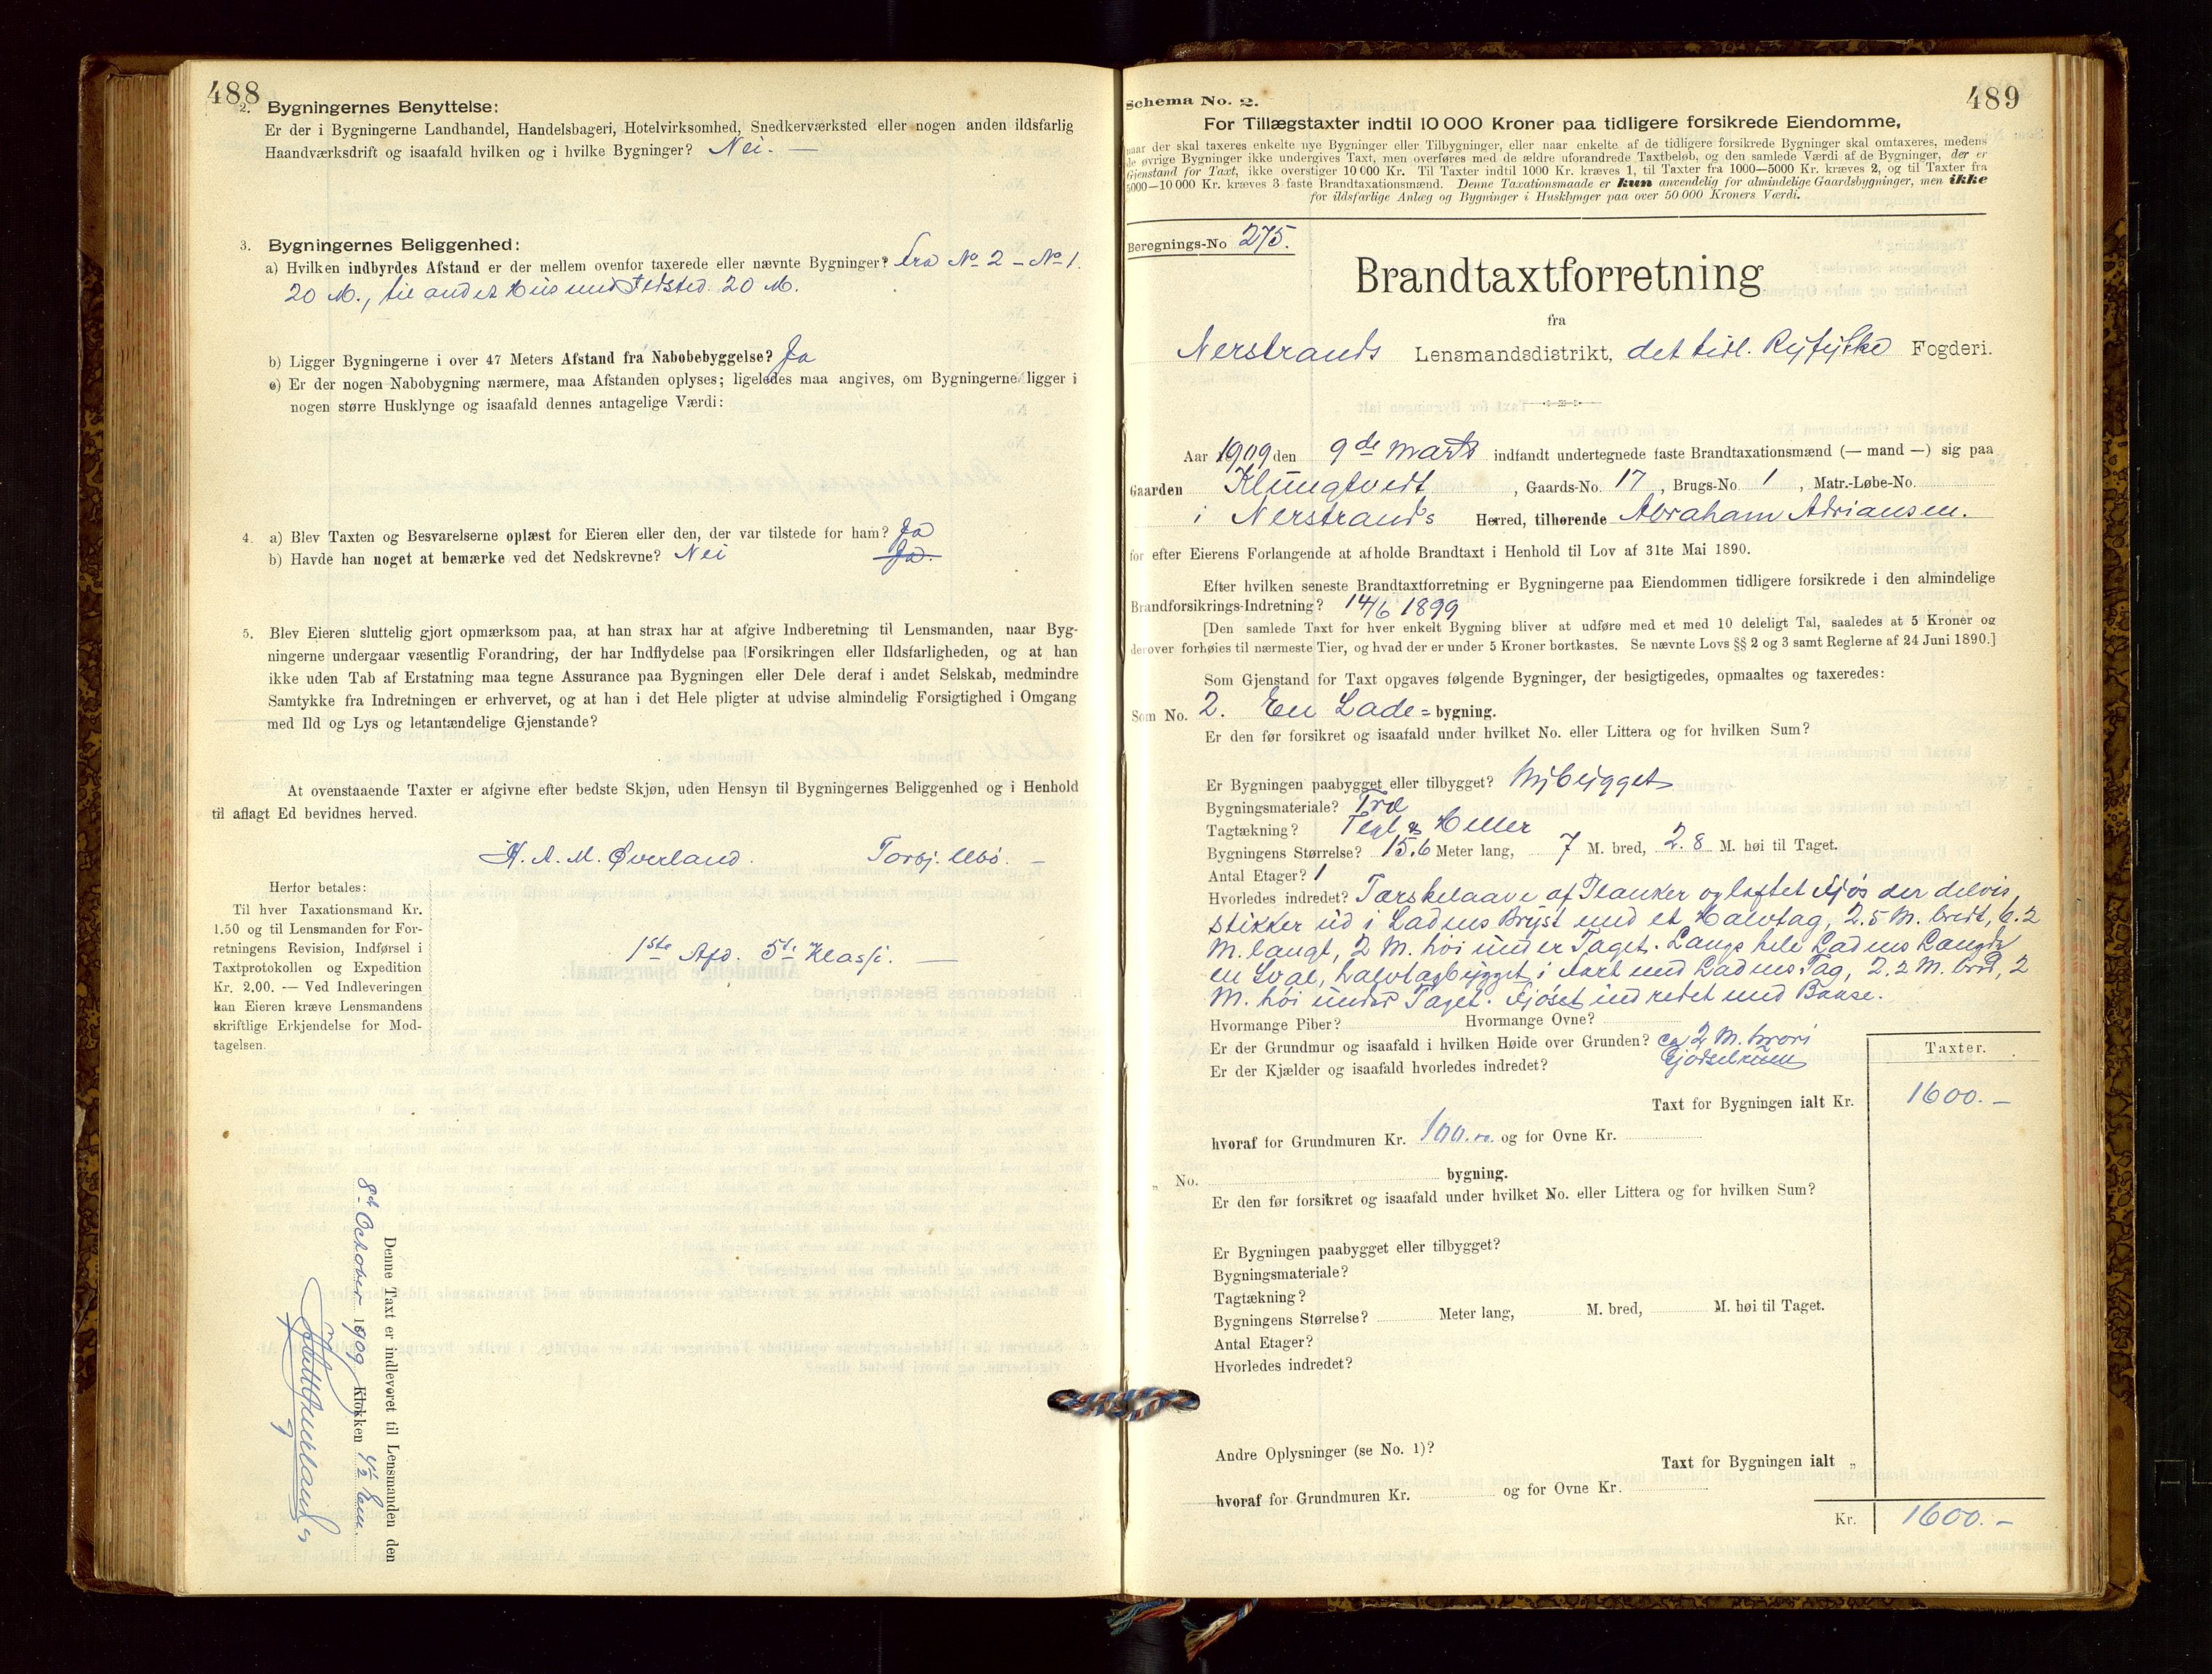 488
2. Bygningernes Benyttelse:
Er der i Bygningerne Landhandel, Handelsbageri, Hotelvirksomhed, Snedkerværksted eller nogen anden ildsfarlig
Haandværksdrift og isaafald hvilken og i hvilke Bygninger? Nei. —
3. Bygningernes Beliggenhed:
a) Hvilken indbyrdes Afstand er der mellem ovenfor taxerede eller nævnte Bygninger? fra No 2 – No 1.
20 M., til andet Hus med Ildsted 20 M.
b) Ligger Bygningerne i over 47 Meters Afstand fra Nabobebyggelse? Ja
c) Er der nogen Nabobygning nærmere, maa Afstanden oplyses; ligeledes maa angives, om Bygningerne ligger i
nogen større Husklynge og isaafald dennes antagelige Værdi:
4. a) Blev Taxten og Besvarelserne oplæst for Eieren eller den, der var tilstede for ham? Ja
b) Havde han noget at bemærke ved det Nedskrevne? Nei Ja.
5. Blev Eieren sluttelig gjort opmærksom paa, at han strax har at afgive Indberetning til Lensmanden, naar Byg-
ningerne undergaar væsentlig Forandring, der har Indflydelse paa Forsikringen eller Ildsfarligheden, og at han
ikke uden Tab af Erstatning maa tegne Assurance paa Bygningen eller Dele deraf i andet Selskab, medmindre
Samtykke fra Indretningen er erhvervet, og at han i det Hele pligter at udvise almindelig Forsigtighed i Omgang
med Ild og Lys og letantændelige Gjenstande?
At ovenstaaende Taxter er afgivne efter bedste Skjøn, uden Hensyn til Bygningernes Beliggenhed og i Henhold
til aflagt Ed bevidnes herved.
H. A. M. Øverland. Torbj. Ubø. —
Herfor betales:
Til hver Taxationsmand Kr.
1.50 og til Lensmanden for For-
retningens Revision, Indførsel i
Taxtprotokollen og Expedition
Kr. 2,00. — Ved Indleveringen
kan Eieren kræve Lensmandens
skriftlige Erkjendelse for Mod-
tagelsen.
1ste Afd. 5te Klasse. —
Denne Taxt er indleveret til Lensmanden den
8de October 1909 Klokken 4½ Em.
489
Schema No. 2.
For Tillægstaxter indtil 10 000 Kroner paa tidligere forsikrede Eiendomme,
naar der skal taxeres enkelte nye Bygninger eller Tilbygninger, eller naar enkelte af de tidligere forsikrede Bygninger skal omtaxeres, medens
de øvrige Bygninger ikke undergives Taxt, men overføres med de ældre uforandrede Taxtbeløb, og den samlede Værdi af de Bygninger, der er
Gjenstand for Taxt, ikke overstiger 10 000 Kr. Til Taxter indtil 1000 Kr. kræves 1, til Taxter fra 1000—5000 Kr. kræves 2, og til Taxter fra
5000—10 000 Kr. kræves 3 faste Brandtaxationsmænd. Denne Taxationsmaade er kun anvendelig for almindelige Gaardsbygninger, men ikke
for ildsfarlige Anlæg og Bygninger i Husklynger paa over 50 000 Kroners Værdi.
Beregnings-No 275.
Brandtaxtforretning
fra
Nerstrands Lensmandsdistrikt, det tidl. Ryfylke Fogderi.
Aar 1909 den 9de Marts indfandt undertegnede faste Brandtaxationsmænd (— mand —) sig paa
Gaarden Klungtvedt, Gaards-No. 17, Brugs-No. 1, Matr.-Løbe-No.
i Nerstrands Herred, tilhørende Abraham Adriansen.
for efter Eierens Forlangende at afholde Brandtaxt i Henhold til Lov af 31te Mai 1890.
Efter hvilken seneste Brandtaxtforretning er Bygningerne paa Eiendommen tidligere forsikrede i den almindelige
Brandforsikrings-Indretning? 14/6 1899
[Den samlede Taxt for hver enkelt Bygning bliver at udføre med et med 10 deleligt Tal, saaledes at 5 Kroner og
derover forhøies til nærmeste Tier, og hvad der er under 5 Kroner bortkastes. Se nævnte Lovs §§ 2 og 3 samt Reglerne af 24 Juni 1890.]
Som Gjenstand for Taxt opgaves følgende Bygninger, der besigtigedes, opmaaltes og taxeredes:
Som No. 2. En Lade=bygning.
Er den før forsikret og isaafald under hvilket No. eller Littera og for hvilken Sum?
Er Bygningen paabygget eller tilbygget? Nybygget
Bygningsmateriale? Træ
Tagtækning? Tegl & Heller
Bygningens Størrelse? 15.6 Meter lang, 7 M. bred, 2.8 M. høi til Taget.
Antal Etager? 1
Hvorledes indredet? Tærskelaave af Planker og loftet Fjøs der delvis
stikker ud i Ladens Bryst med et Halvtag, 2.5 M. bredt, 6.2
M. langt, 2 M. høi under Taget. Langs hele Ladens Længde
en Sval, halvtagbygget i Fart med Ladens Tag, 2.2 M. bred, 2
M. høi under Taget. Fjøset indredet med Baase.
Hvormange Piber? Hvormange Ovne?
Er der Grundmur og isaafald i hvilken Høide over Grunden? ca 2 M. hvori
Er der Kjælder og isaafald hvorledes indredet? Gjødselrum
Taxter.
Taxt for Bygningen ialt Kr. 1600.–
hvoraf for Grundmuren Kr. 100.00 og for Ovne Kr.
„ No. bygning.
Er den før forsikret og isaafald under hvilket No. eller Littera og for hvilken Sum?
Er Bygningen paabygget eller tilbygget?
Bygningsmateriale?
Tagtækning?
Bygningens Størrelse? Meter lang, M. bred, M. høi til Taget.
Antal Etager?
Hvorledes indredet?
Andre Oplysninger (se No. 1)?
Taxt for Bygningen ialt „
hvoraf for Grundmuren Kr. og for Ovne Kr.
Kr. 1600.–